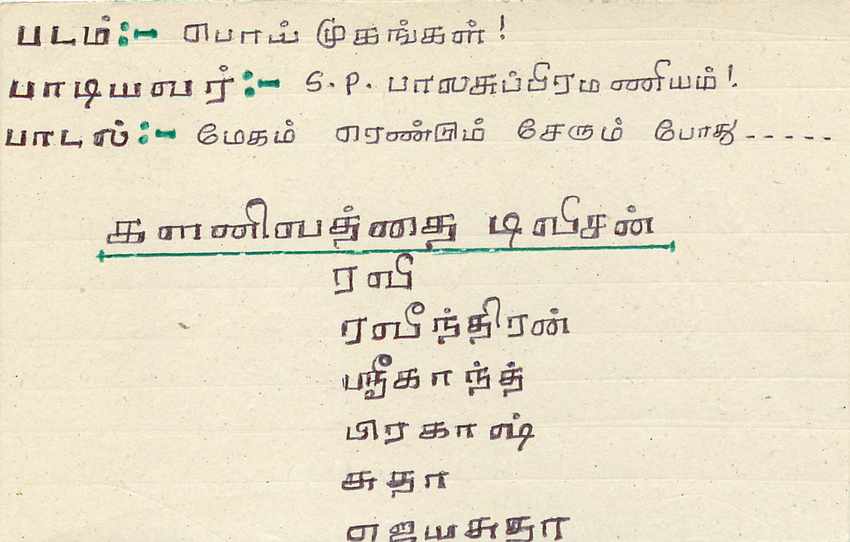 படம்:- பொய் முகங்கள்!
பாடியவர்:- S.P. பாலசுப்பிரமணியம்!
பாடல்:- மேகம் ரெண்டும் சேரும் போது-----
களனிவத்தை டிவிசன்
ரவி
ரவீந்திரன்
ஸ்ரீகாந்த்
பிரகாஷ்
சுதா
ஜெயசுதா